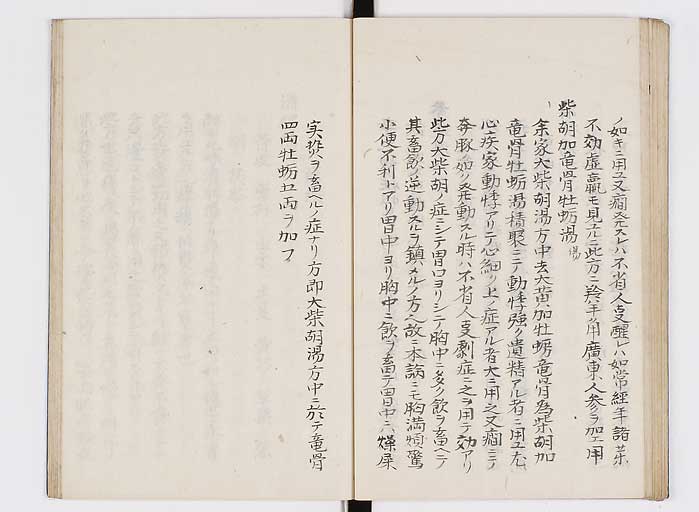 ノ如キニ用ユ又癇発スレハ不省人事醒レハ如常経年諸薬
不効虚羸モ見元ニ此方ニ羚羊角廣東人参ヲ加エ用
柴胡加竜骨牡蛎湯
余家大柴胡湯方中去大黄加牡蛎竜骨為柴胡加
竜骨牡蛎湯積聚ニテ動悸強ク遺精アル者ニ用ユ尤
心疾家動悸アリテ心細ク上ノ症アル者大ニ用之又癇ニテ
奔豚ノ如ク発動スル時ハ不省人事劇症ニ之ヲ用テ効アリ
此方大柴胡ノ症ニシテ胃口ヨリシテ胸中ニ多ク飲ヲ畜ヘテ
其畜飲ノ逆動スルヲ鎮メルノ方ヘ故ニ本論ニモ胸満煩驚
小便不利トアリ胃中ヨリ胸中ニ飲ヲ畜テ胃中ハ燥屎
実熱ヲ畜ヘルノ症ナリ方即大柴胡湯方中ニ於テ竜骨
四両牡蛎五両ヲ加フ